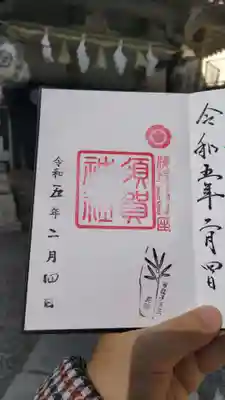 令和五年二月四日
須賀
神社
令和五年二月四日